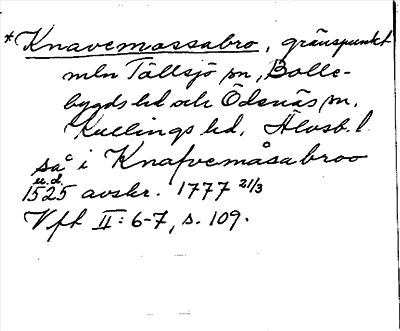 *Knavemossabro, gränspunkt
mln Töllsjö sn, Bolle-
bygds hd och Ödenäs sn,
Kullings hd, Älvsb. l.
så i Knafvemåsabroo
u.d.
1525 avskr. 1777 21/3
Vft II: 6-7, s. 109.